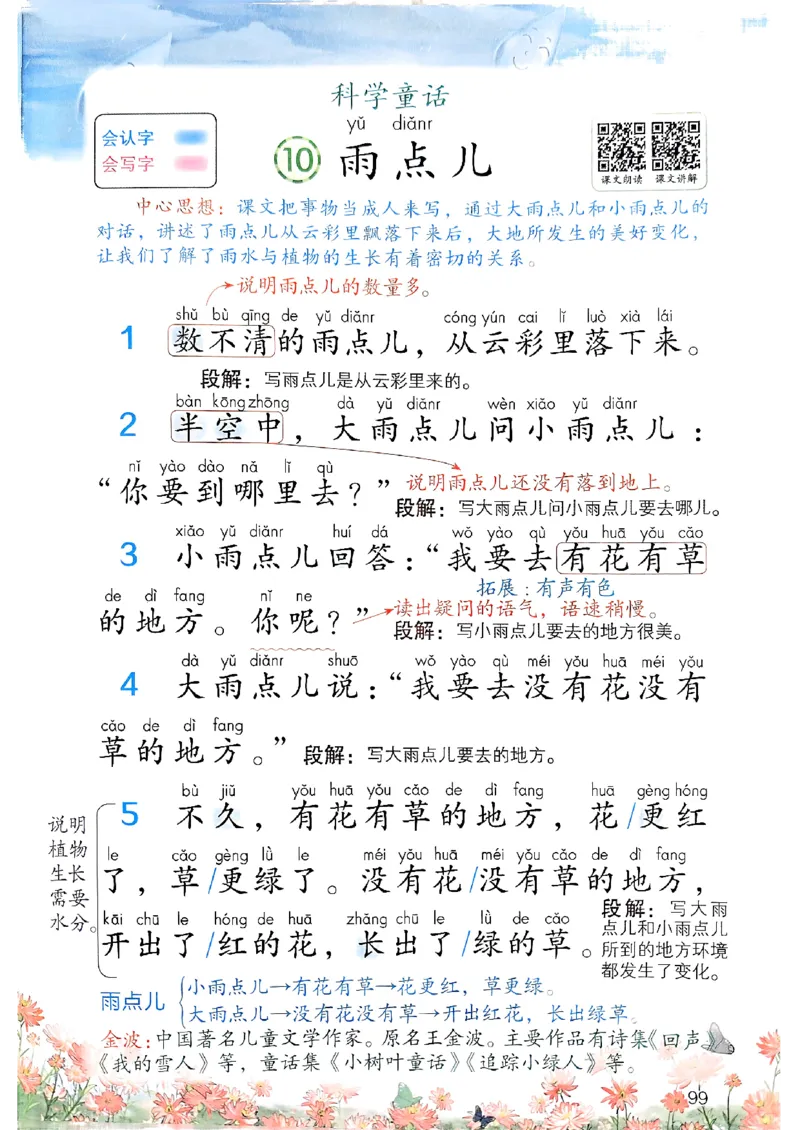 科学童话
会认字
会写字
yǔ diǎnr
10 雨点儿
课文朗读 课文讲解
中心思想：课文把事物当成人来写，通过大雨点儿和小雨点儿的
对话，讲述了雨点儿从云彩里飘落下来后，大地所发生的美好变化，
让我们了解了雨水与植物的生长有着密切的关系。
说明雨点儿的数量多。
shǔ bù qīng de yǔ diǎnr cóng yún cai lǐ luò xià lái
1 数不清的雨点儿，从云彩里落下来。
段解：写雨点儿是从云彩里来的。
bàn kōng zhōng dà yǔ diǎnr wèn xiǎo yǔ diǎnr
2 半空中，大雨点儿问小雨点儿：
nǐ yào dào nǎ lǐ qù
“你要到哪里去？” 说明雨点儿还没有落到地上。
段解：写大雨点儿问小雨点儿要去哪儿。
xiǎo yǔ diǎnr huí dá wǒ yào qù yǒu huā yǒu cǎo
3 小雨点儿回答：“我要去有花有草
拓展：有声有色
de dì fang nǐ ne
的地方。你呢？” 读出疑问的语气，语速稍慢。
段解：写小雨点儿要去的地方很美。
dà yǔ diǎnr shuō wǒ yào qù méi yǒu huā méi yǒu
4 大雨点儿说：“我要去没有花没有
cǎo de dì fang
草的地方。” 段解：写大雨点儿要去的地方。
bù jiǔ yǒu huā yǒu cǎo de dì fang huā gèng hóng
5 不久，有花有草的地方，花/更红
le cǎo gèng lǜ le méi yǒu huā méi yǒu cǎo de dì fang
了，草/更绿了。没有花/没有草的地方，
kāi chū le hóng de huā zhǎng chū le lǜ de cǎo
开出了/红的花，长出了/绿的草。
说明
植物
生长
需要
水分。
段解：写大雨
点儿和小雨点儿
所到的地方环境
都发生了变化。
雨点儿
小雨点儿→有花有草→花更红，草更绿。
大雨点儿→没有花没有草→开出红花，长出绿草。
金波：中国著名儿童文学作家。原名王金波。主要作品有诗集《回声》
《我的雪人》等，童话集《小树叶童话》《追踪小绿人》等。
99